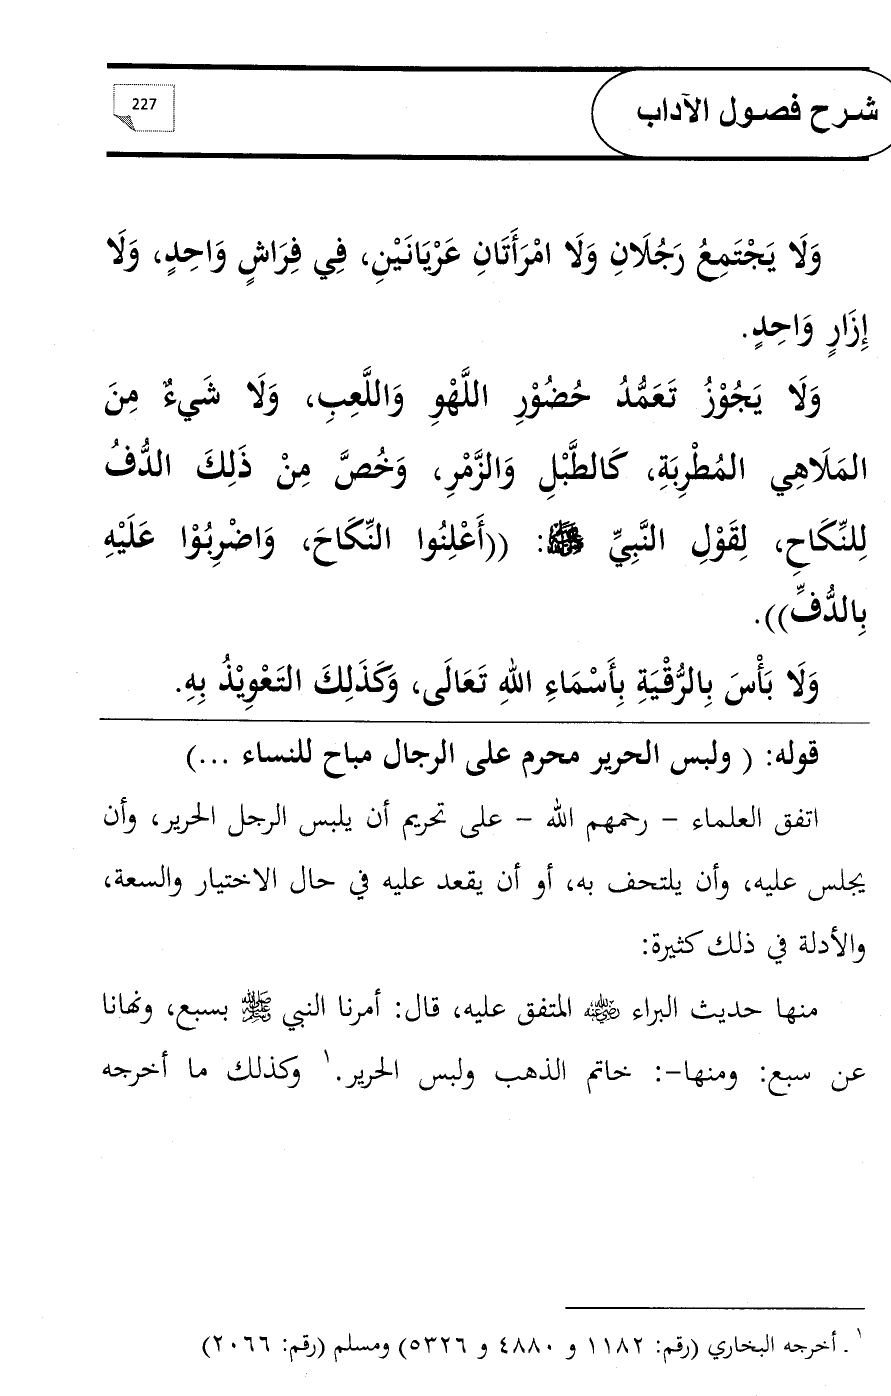 شرح فصول الآداب
227
وَلَا يَجْتَمِعُ رَجُلَانِ وَلَا امْرَأَتَانِ عَرْيَانَيْنِ، فِي فِرَاشٍ وَاحِدٍ، وَلَا
إِزَارٍ وَاحِدٍ.
وَلَا يَجُوْزُ تَعَمُّدُ حُضُوْرِ اللَّهْوِ وَاللَّعِبِ، وَلَا شَيءٌ مِنَ
المَلَاهِي المُطْرِبَةِ، كَالطَّبْلِ وَالزَّمْرِ، وَخُصَّ مِنْ ذَلِكَ الدُّفُ
لِلنِّكَاحِ، لِقَوْلِ النَّبِيِّ ﷺ: ((أَعْلِنُوا النِّكَاحَ، وَاضْرِبُوْا عَلَيْهِ
بِالدُّفِّ)).
وَلَا بَأْسَ بِالرُّقْيَةِ بِأَسْمَاءِ اللهِ تَعَالَى، وَكَذَلِكَ التَعْوِيْذُ بِهِ.
قوله: ( ولبس الحرير محرم على الرجال مباح للنساء ...)
اتفق العلماء - رحمهم الله - على تحريم أن يلبس الرجل الحرير، وأن
يجلس عليه، وأن يلتحف به، أو أن يقعد عليه في حال الاختيار والسعة،
والأدلة في ذلك كثيرة:
منها حديث البراء رضي الله عنه المتفق عليه، قال: أمرنا النبي ﷺ بسبع، ونهانا
عن سبع: ومنها-: خاتم الذهب ولبس الحرير.١ وكذلك ما أخرجه
١. أخرجه البخاري (رقم: ١١٨٢ و ٤٨٨٠ و ٥٣٢٦) ومسلم (رقم: ٢٠٦٦)